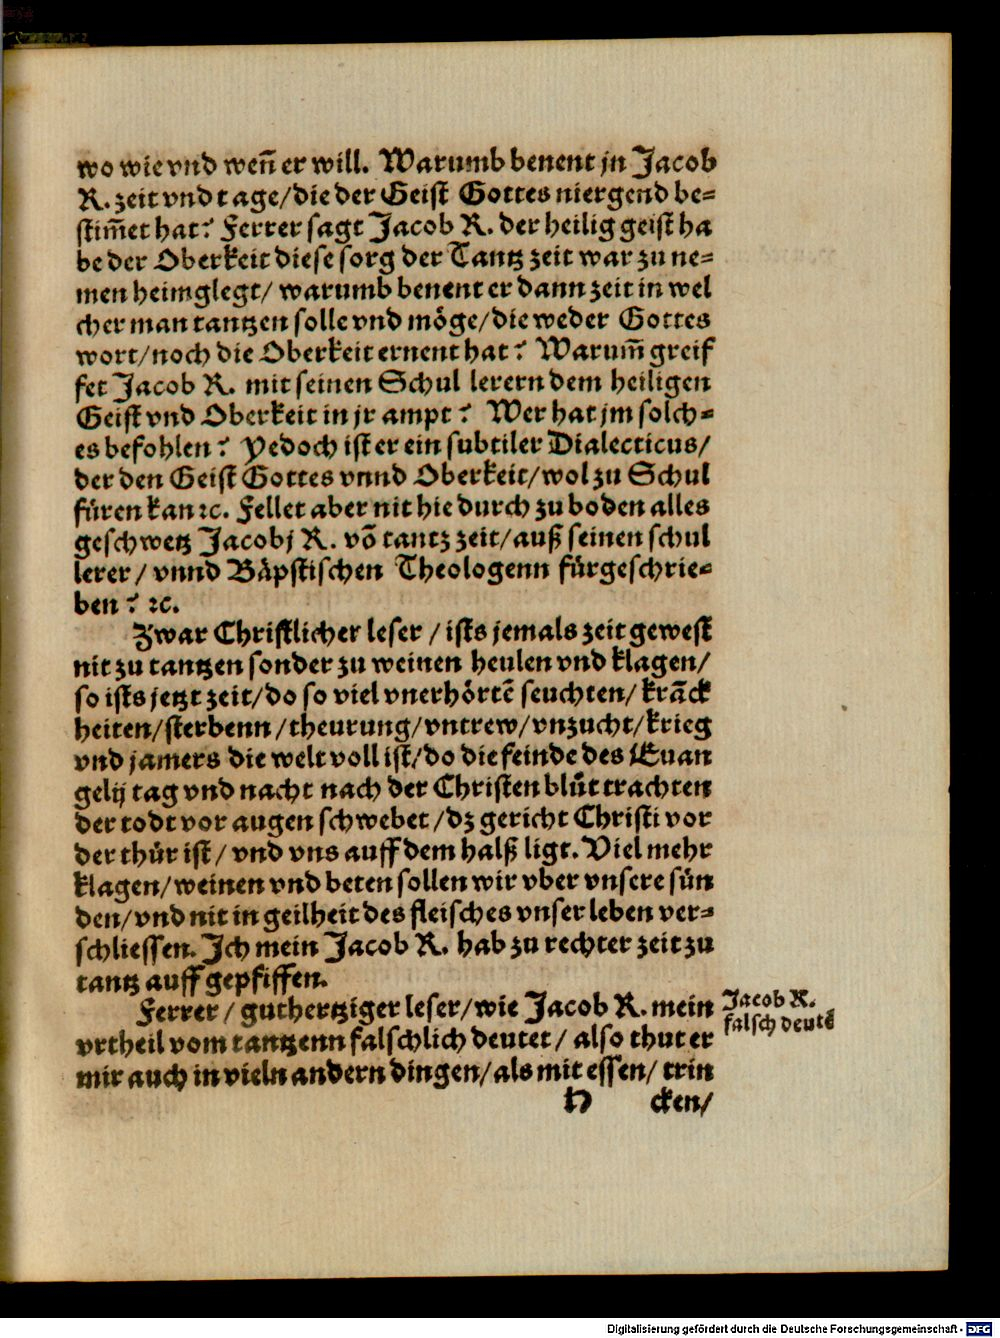 wo wie vnd weñ er will. Warumb benent jn Jacob
R. zeit vnd tage/die der Geist Gottes niergend be=
stim̃et hat? Ferrer sagt Jacob R. der heilig geist ha
be der Oberkeit diese sorg der Tantz zeit war zu ne=
men heimglegt/ warumb benent er dann zeit in wel
cher man tantzen solle vnd möge/die weder Gottes
wort/noch die Oberkeit ernent hat? Warum̃ greif
fet Jacob R. mit seinen Schul lerern dem heiligen
Geist vnd Oberkeit in jr ampt? Wer hat jm solch=
es befohlen? Yedoch ist er ein subtiler Dialecticus/
der den Geist Gottes vnnd Oberkeit/wol zu Schul
füren kan ꝛc. Fellet aber nit hie durch zu boden alles
geschwetz Jacobj R. võ tantz zeit/auß seinen schul
lerer/ vnnd Bäpstischen Theologenn fürgeschrie=
ben? ꝛc.
Zwar Christlicher leser/ ists jemals zeit gewest
nit zu tantzen sonder zu weinen heulen vnd klagen/
so ists jetzt zeit/do so viel vnerhörtẽ seuchten/ krãck
heiten/sterbenn/theurung/vntrew/vnzucht/krieg
vnd jamers die welt voll ist/do die feinde des Euan
gelij tag vnd nacht nach der Christen blůt trachten
der todt vor augen schwebet/dz gericht Christi vor
der thür ist/ vnd vns auff dem halß ligt. Viel mehr
klagen/weinen vnd beten sollen wir vber vnsere sün
den/vnd nit in geilheit des fleisches vnser leben ver=
schliessen. Ich mein Jacob R. hab zu rechter zeit zu
tantz auff gepfiffen.
Ferrer/ guthertziger leser/wie Jacob R. mein
vrtheil vom tantzenn falschlich deutet/ also thut er
mir auch in vieln andern dingen/als mit essen/ trin
Jacob R.
falsch deutẽ
H cken/
Digitalisierung gefördert durch die Deutsche Forschungsgemeinschaft - DFG